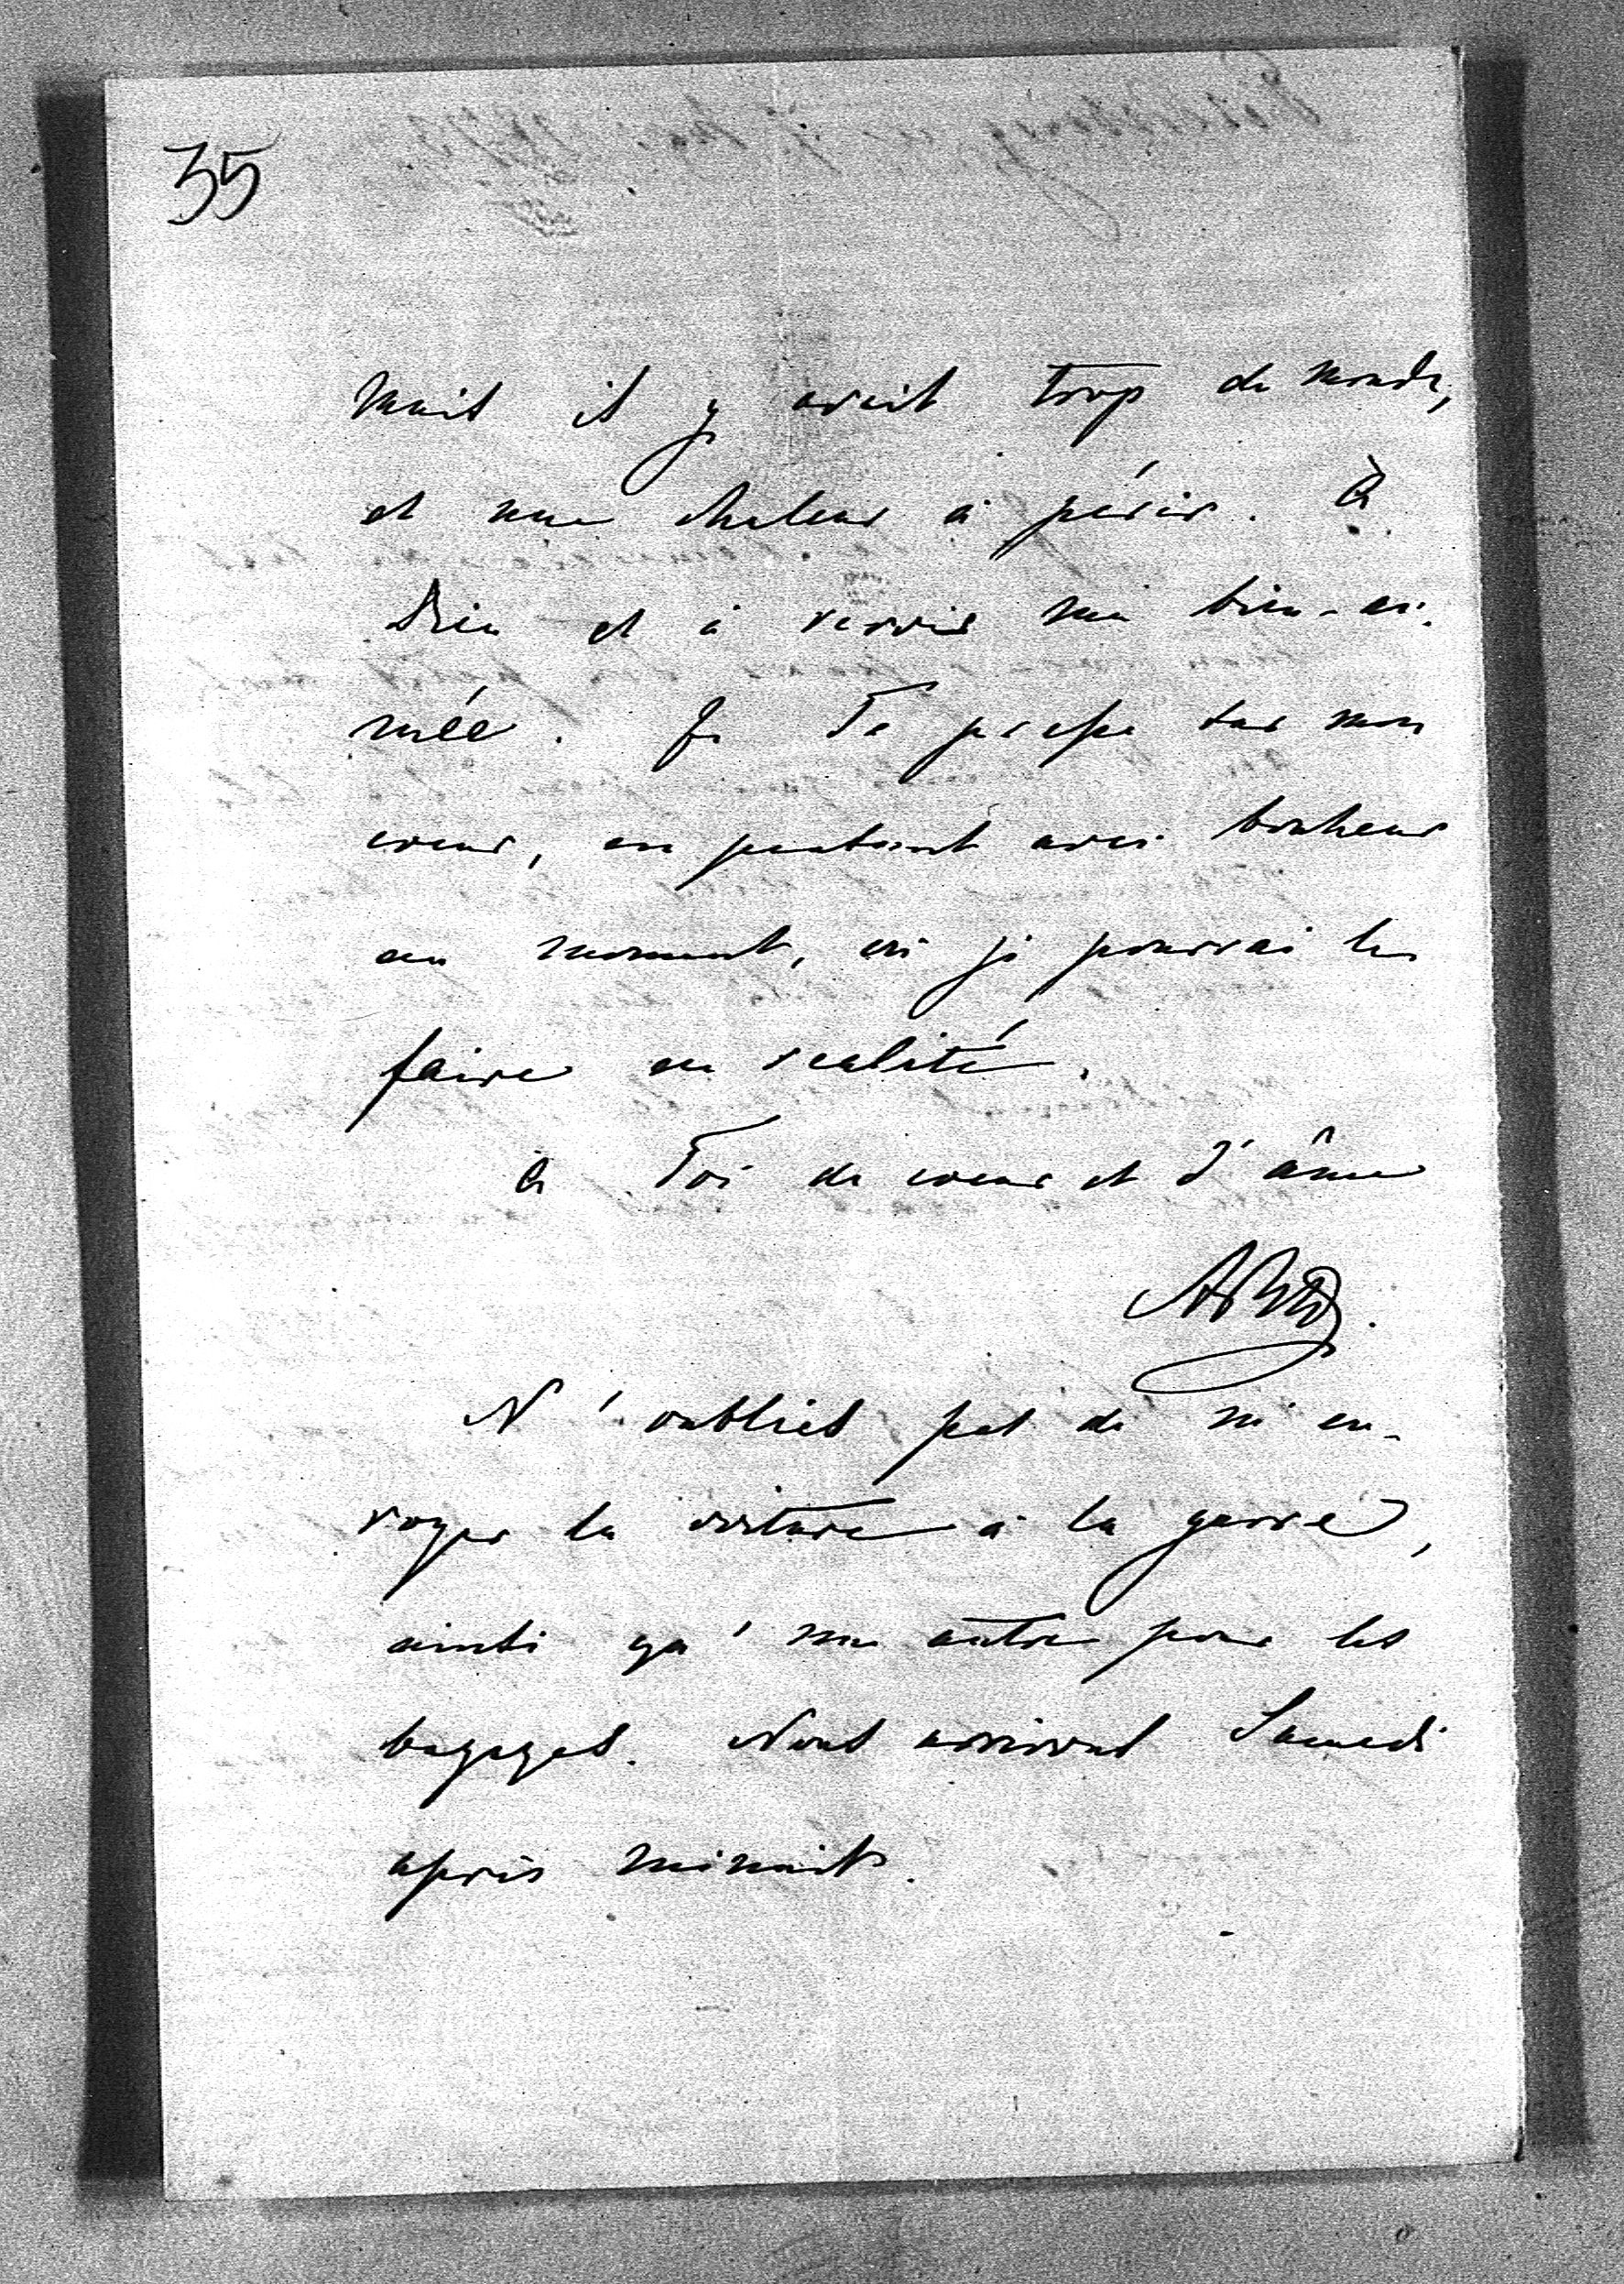 35
mais il y avait trop de monde,
et une chaleur à périr. à
Dieu et à revoir ma bien-ai-
mée. Je Te presse sur mon
coeur, en pensant avec bonheur
au moment, où je pourrai le
faire en realité.
à Toi de coeur et d'âme
N'oublies pas de m'en-
voyer la voiture à la garre,
ainsi qu'une autre pour les
bagages. Nous arrivons Samedi
après minuit.